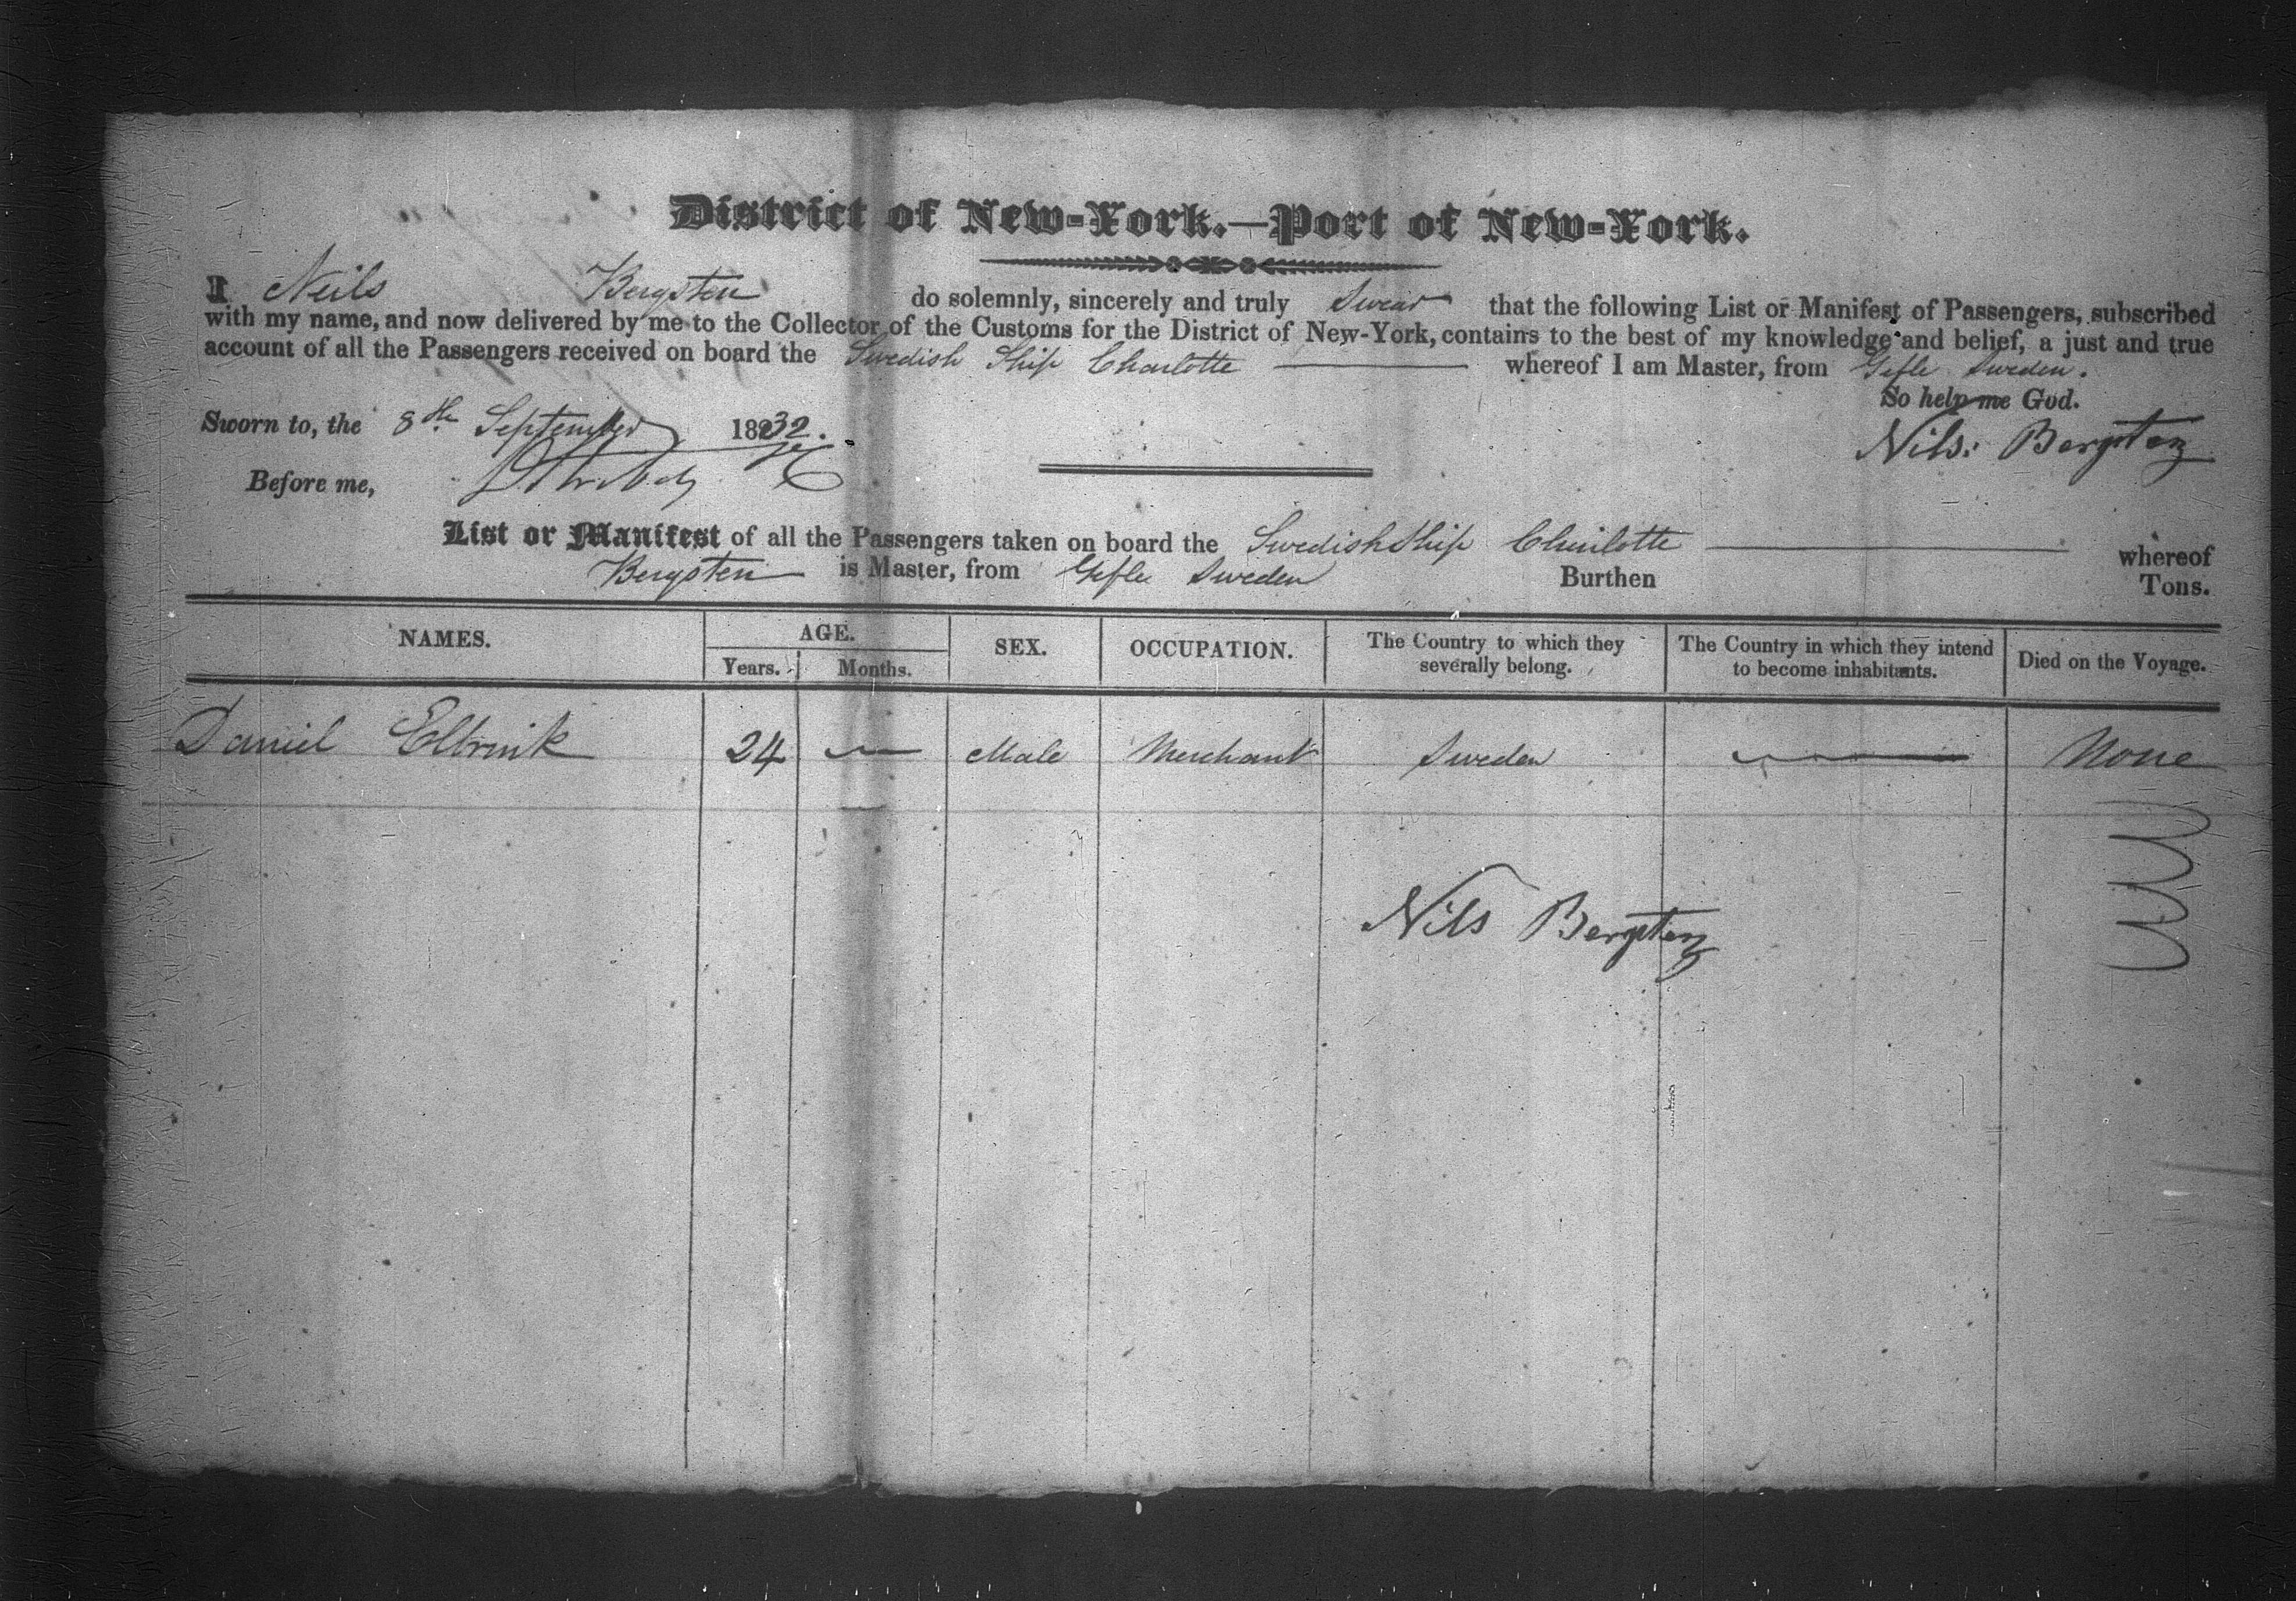 District of New-York.—Port of New-York.
I Neils Bergsten do solemnly, sincerely and truly Swear that the following List or Manifest of Passengers, subscribed
with my name, and now delivered by me to the Collector of the Customs for the District of New-York, contains to the best of my knowledge and belief, a just and true
account of all the Passengers received on board the Swedish Ship Charlotte — whereof I am Master, from Gefle Sweden.
So help me God.
Sworn to, the 8th September 1832.
Nils Bergsten
Before me,
List or Manifest of all the Passengers taken on board the Swedish Ship Charlotte — whereof
Bergsten is Master, from Gefle Sweden Burthen Tons.
NAMES. AGE. SEX. OCCUPATION. The Country to which they severally belong. The Country in which they intend to become inhabitants. Died on the Voyage.
Years. Months.
Daniel Elbrink 24 — Male Merchant Sweden — None
Nils Bergsten